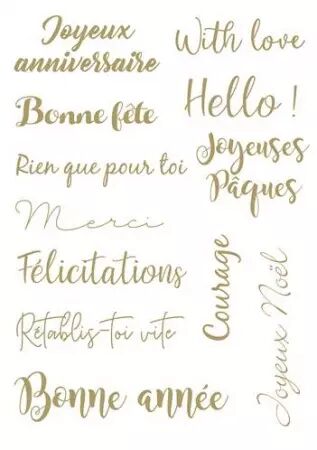 Joyeux
anniversaire
With love
Bonne fête
Hello !
Joyeuses
Pâques
Rien que pour toi
Merci
Félicitations
Courage
Joyeux Noël
Rétablis-toi vite
Bonne année